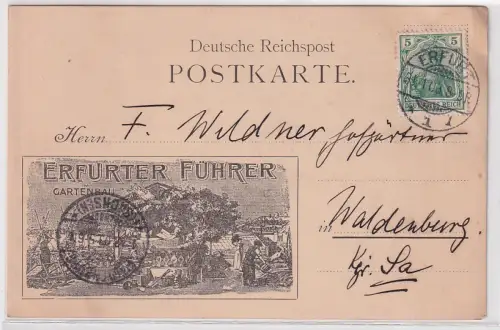 Deutsche Reichspost
POSTKARTE.
5 5
ERFURT
REICH
1 1
Herrn F. Wildner Hofgärtner
ERFURTER FÜHRER
GARTENBAU
in Waldenburg
Kgr. Sa